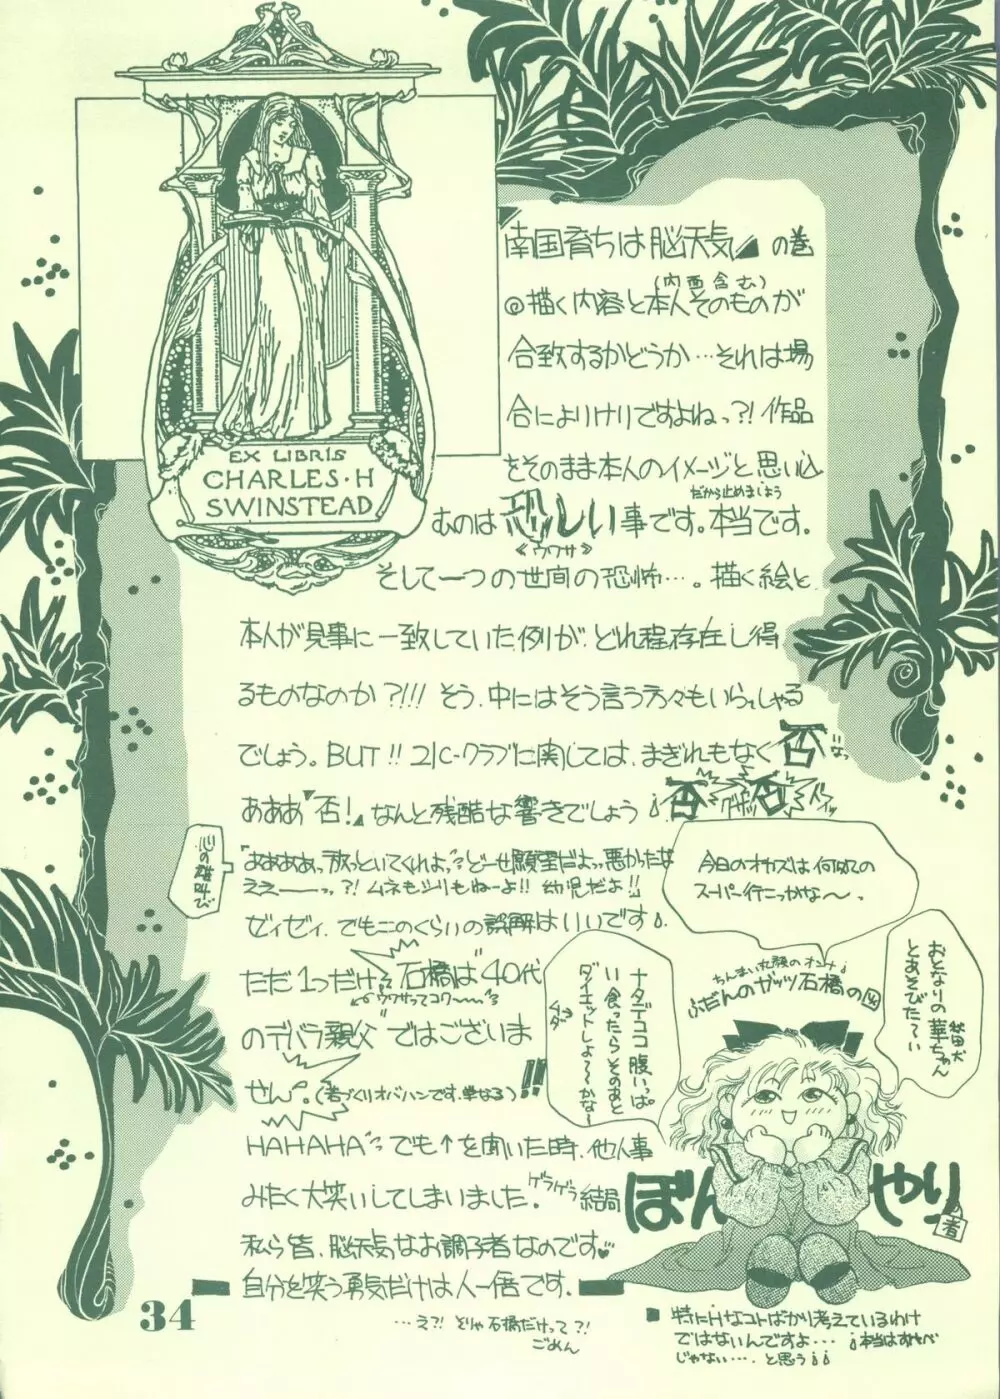 EX LIBRIS
CHARLES·H
SWINSTEAD
南国育ちは脳天気 の巻
(内面含む)
◎描く内容と本人そのものが
合致するかどうか…それは場
合によりけりですよねっ?! 作品
をそのまま本人のイメージと思い込
だから止めましょう
むのは恐しい事です。本当です。
《ウワサ》
そして一つの世間の恐怖…。描く絵と
本人が見事に一致していた例が、どれ程存在し得
るものなのか?!!! そう、中にはそう言う方々もいらっしゃる
でしょう。BUT!! 21C-クラブに関しては、まぎれもなく否
あああ“否!”なんと残酷な響きでしょう 否 グサッ 否
心の雄叫び
“ああああっ放っといてくれよっ?どーせ願望だよっ悪かったな
ええーーっっ?! ムネもシリもねーよ!! 幼児だよ!!”
ゼイゼイ、でもこのくらいの誤解はいいです。
ただ1つだけ 石橋は“40代
ウワサってコワ〜〜い
のデバラ親父”ではございま
せん。(若づくりオバハンです、単なる)!!
HAHAHA でも↑を聞いた時、他人事
みたく大笑いしてしまいました。ゲラゲラ 結局
私ら皆、脳天気なお調子者なのです♥
自分を笑う勇気だけは人一倍です。
…え?! とりゃ石橋だけって?!
ごめん
34
今日のオカズは何かな
スーパー行こっかな〜。
おとなりの華ちゃん
秋田犬
とあそびた〜い
ナタデココ腹いっぱ
い食ったらそのあと
ダイエットしよ〜〜かな〜
ムダ
ちんまい丸顔のオンナ
ふだんのガッツ石橋の図
ぼんやり
の者
■特にHなコトばかり考えているわけ
ではないんですよ… 本当はすけべ
じゃない…. と思う